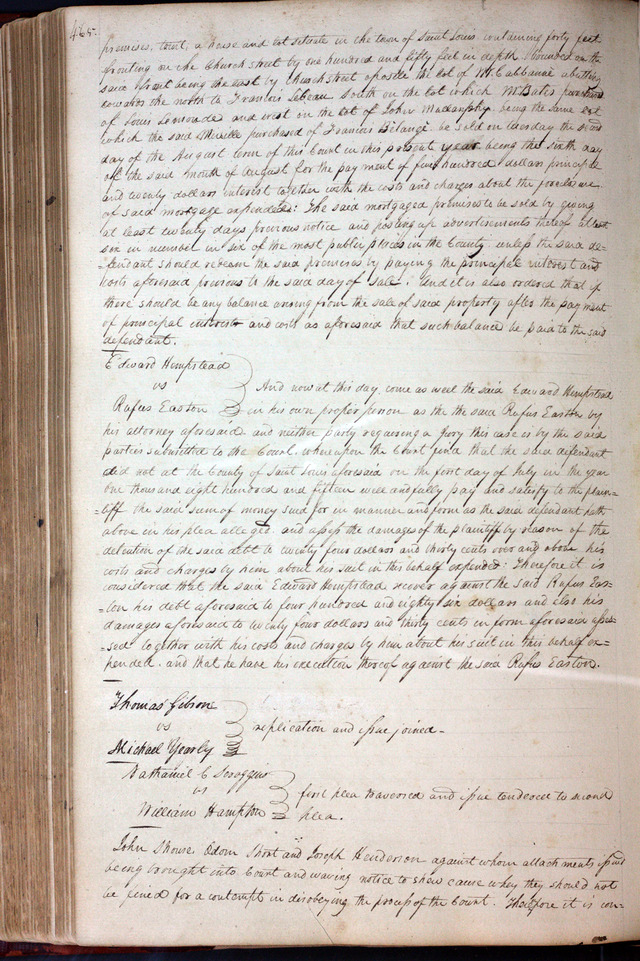 465.
premises, towit, a house and lot situate in the town of Saint Louis containing forty feet
fronting on the Church street by one hundred and fifty feet in depth bounded on the
said front being the east by church street oposite the lot of Mr Cabbanne abutting
towards the north to Francois Lebeau South on the lot which M Bates purchased
of Louis Lemonde and west in the lot of John Mullanphy being the same lot
which the said purchased of Francois Belange be sold on tuesday the second
day of the August term of this Court in this present year being the sixth day
of the said month of August for the payment of five hundred dollars principle
and twenty dollars interest together with the costs and charges about the foreclosure
of said mortgage expended: The said mortgaged premises to be sold by giving
at least twenty days previous notice and posting up advertisements thereof at least
six in number in six of the most public places in the County unless the said de-
-fendant should redeem the said premises by paying the principle interest and
costs aforesaid previous to the said day of sale. And it is also ordered that if
there should be any balance arising from the sale of said property after the payment
of principal interest and costs as aforesaid that such balance be paid to the said
defendant.
Edward Hempstead
vs
And now at this day come as well the said Edward Hempstead
Rufus Easton
in his own proper person as the the said Rufus Easton by
his attorney aforesaid and neither party requiring a jury this case is by the said
parties submitted to the Court, whereupon the Court find that the said defendant
did not at the County of Saint Louis aforesaid on the first day of July in the year
one thousand eight hundred and fifteen well and fully pay and satisfy to the plain-
-tiff the said sum of money sued for in manner and form as the said defendant hath
above in his plea alleged and assess the damages of the plaintiff by reason of the
detention of the said debt to twenty four dollars and thirty cents over and above his
costs and charges by him about his suit in this behalf expended: Therefore it is
considered that the said Edward Hempstead recover against the said Rufus Eas-
-ton his debt aforesaid to four hundred and eighty six dollars and also his
damages aforesaid to twenty four dollars and thirty cents in form aforesaid asses-
-sed together with his costs and charges by him about his suit in this behalf ex-
-pended. and that he have his execution thereof against the said Rufus Easton.
Thomas Gibson
vs
replication and issue joined-
Michael Yearly
Nathaniel C Scroggin
vs
first plea traversed and issue tendered to second
William Hampton
plea.
John Shouse Odom Short and Joseph Henderson against whom attachments issued
being brought into Court and waving notice to shew cause why they should not
be fined for a contempt in disobeying the process of the Court. Therefore it is con-